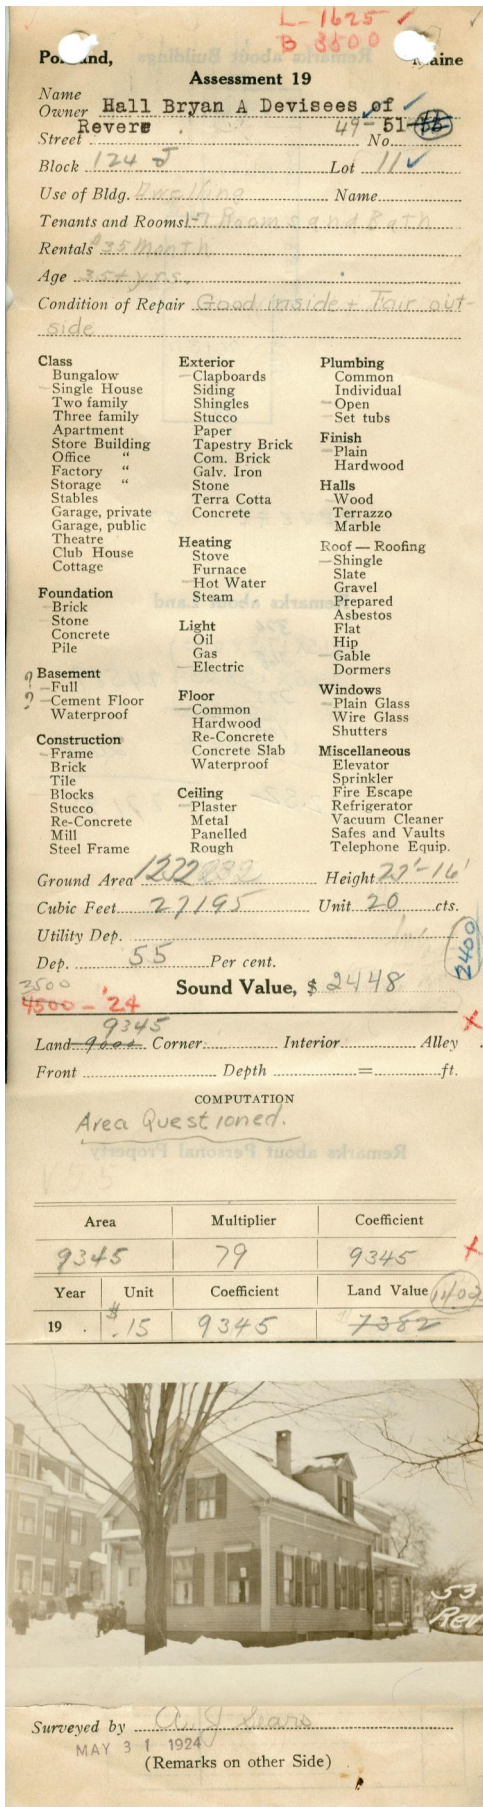 L-1625 ✓
B 3500
Portland, Maine
Assessment 19
Name
Owner Hall Bryan A Devisees of
Street Revere No. 49-51-55
Block 124 J Lot 11 ✓
Use of Bldg. Dwelling Name
Tenants and Rooms 1-7 Rooms and Bath
Rentals $35 Month
Age 35+ yrs.
Condition of Repair Good inside + Fair out-
side
Class
Bungalow
- Single House
Two family
Three family
Apartment
Store Building
Office "
Factory "
Storage "
Stables
Garage, private
Garage, public
Theatre
Club House
Cottage
Foundation
- Brick
- Stone
Concrete
Pile
Basement
? - Full
? - Cement Floor
Waterproof
Construction
- Frame
Brick
Tile
Blocks
Stucco
Re-Concrete
Mill
Steel Frame
Exterior
- Clapboards
Siding
Shingles
Stucco
Paper
Tapestry Brick
Com. Brick
Galv. Iron
Stone
Terra Cotta
Concrete
Heating
Stove
Furnace
- Hot Water
Steam
Light
Oil
Gas
- Electric
Floor
- Common
Hardwood
Re-Concrete
Concrete Slab
Waterproof
Ceiling
- Plaster
Metal
Panelled
Rough
Plumbing
Common
Individual
- Open
- Set tubs
Finish
- Plain
Hardwood
Halls
- Wood
Terrazzo
Marble
Roof — Roofing
- Shingle
Slate
Gravel
Prepared
Asbestos
Flat
Hip
- Gable
Dormers
Windows
- Plain Glass
Wire Glass
Shutters
Miscellaneous
Elevator
Sprinkler
Fire Escape
Refrigerator
Vacuum Cleaner
Safes and Vaults
Telephone Equip.
Ground Area 1232 Height 22'-16'
Cubic Feet 27195 Unit 20 cts.
Utility Dep.
Dep. 55 Per cent.
2400
Sound Value, $ 2448
3500
4500 - '24
9345
Land 9000 Corner Interior Alley
Front Depth = ft.
COMPUTATION
Area Questioned.
Area Multiplier Coefficient
9345 79 9345
Year Unit Coefficient Land Value 1402
19 . $.15 9345 7382
53
Rev
Surveyed by A. J. Sears
MAY 31 1924
(Remarks on other Side)